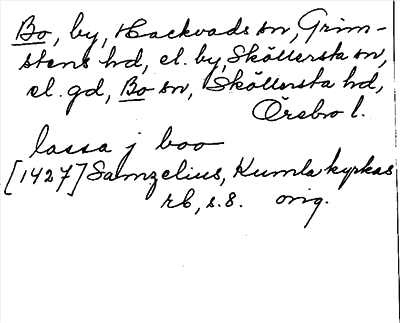 Bo, by, Hackvads sn, Grim-
stens hd, el. by, Sköllersta sn,
el. gd, Bo sn, Sköllersta hd,
Örebro l.
lassa j boo
[1427] Samzelius, Kumla kyrkas
rb, s.8. orig.